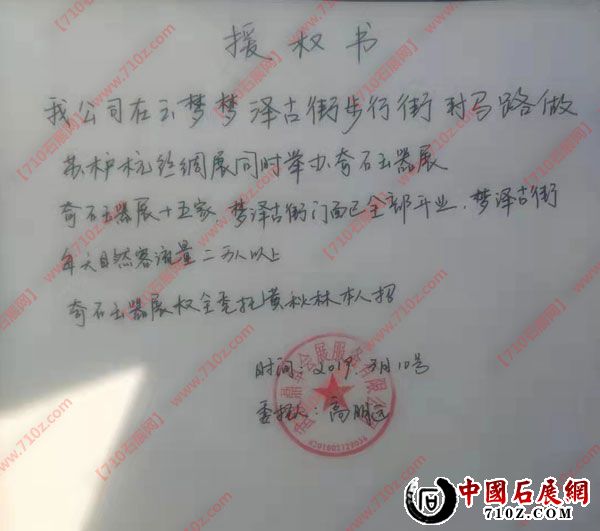 授权书
我公司在云梦梦泽古街步行街对马路做
苏沪杭丝绸展同时举办奇石玉器展
奇石玉器展十五家,梦泽古街门面已全部开业,梦泽古街
每天自然客流量二万人以上
奇石玉器展权全委托黄秋林本人招
时间:2019.3月10号
委托人:高明远
会展服务有限公司
【710石展网】www.710z.com
中國石展網
710Z.COM